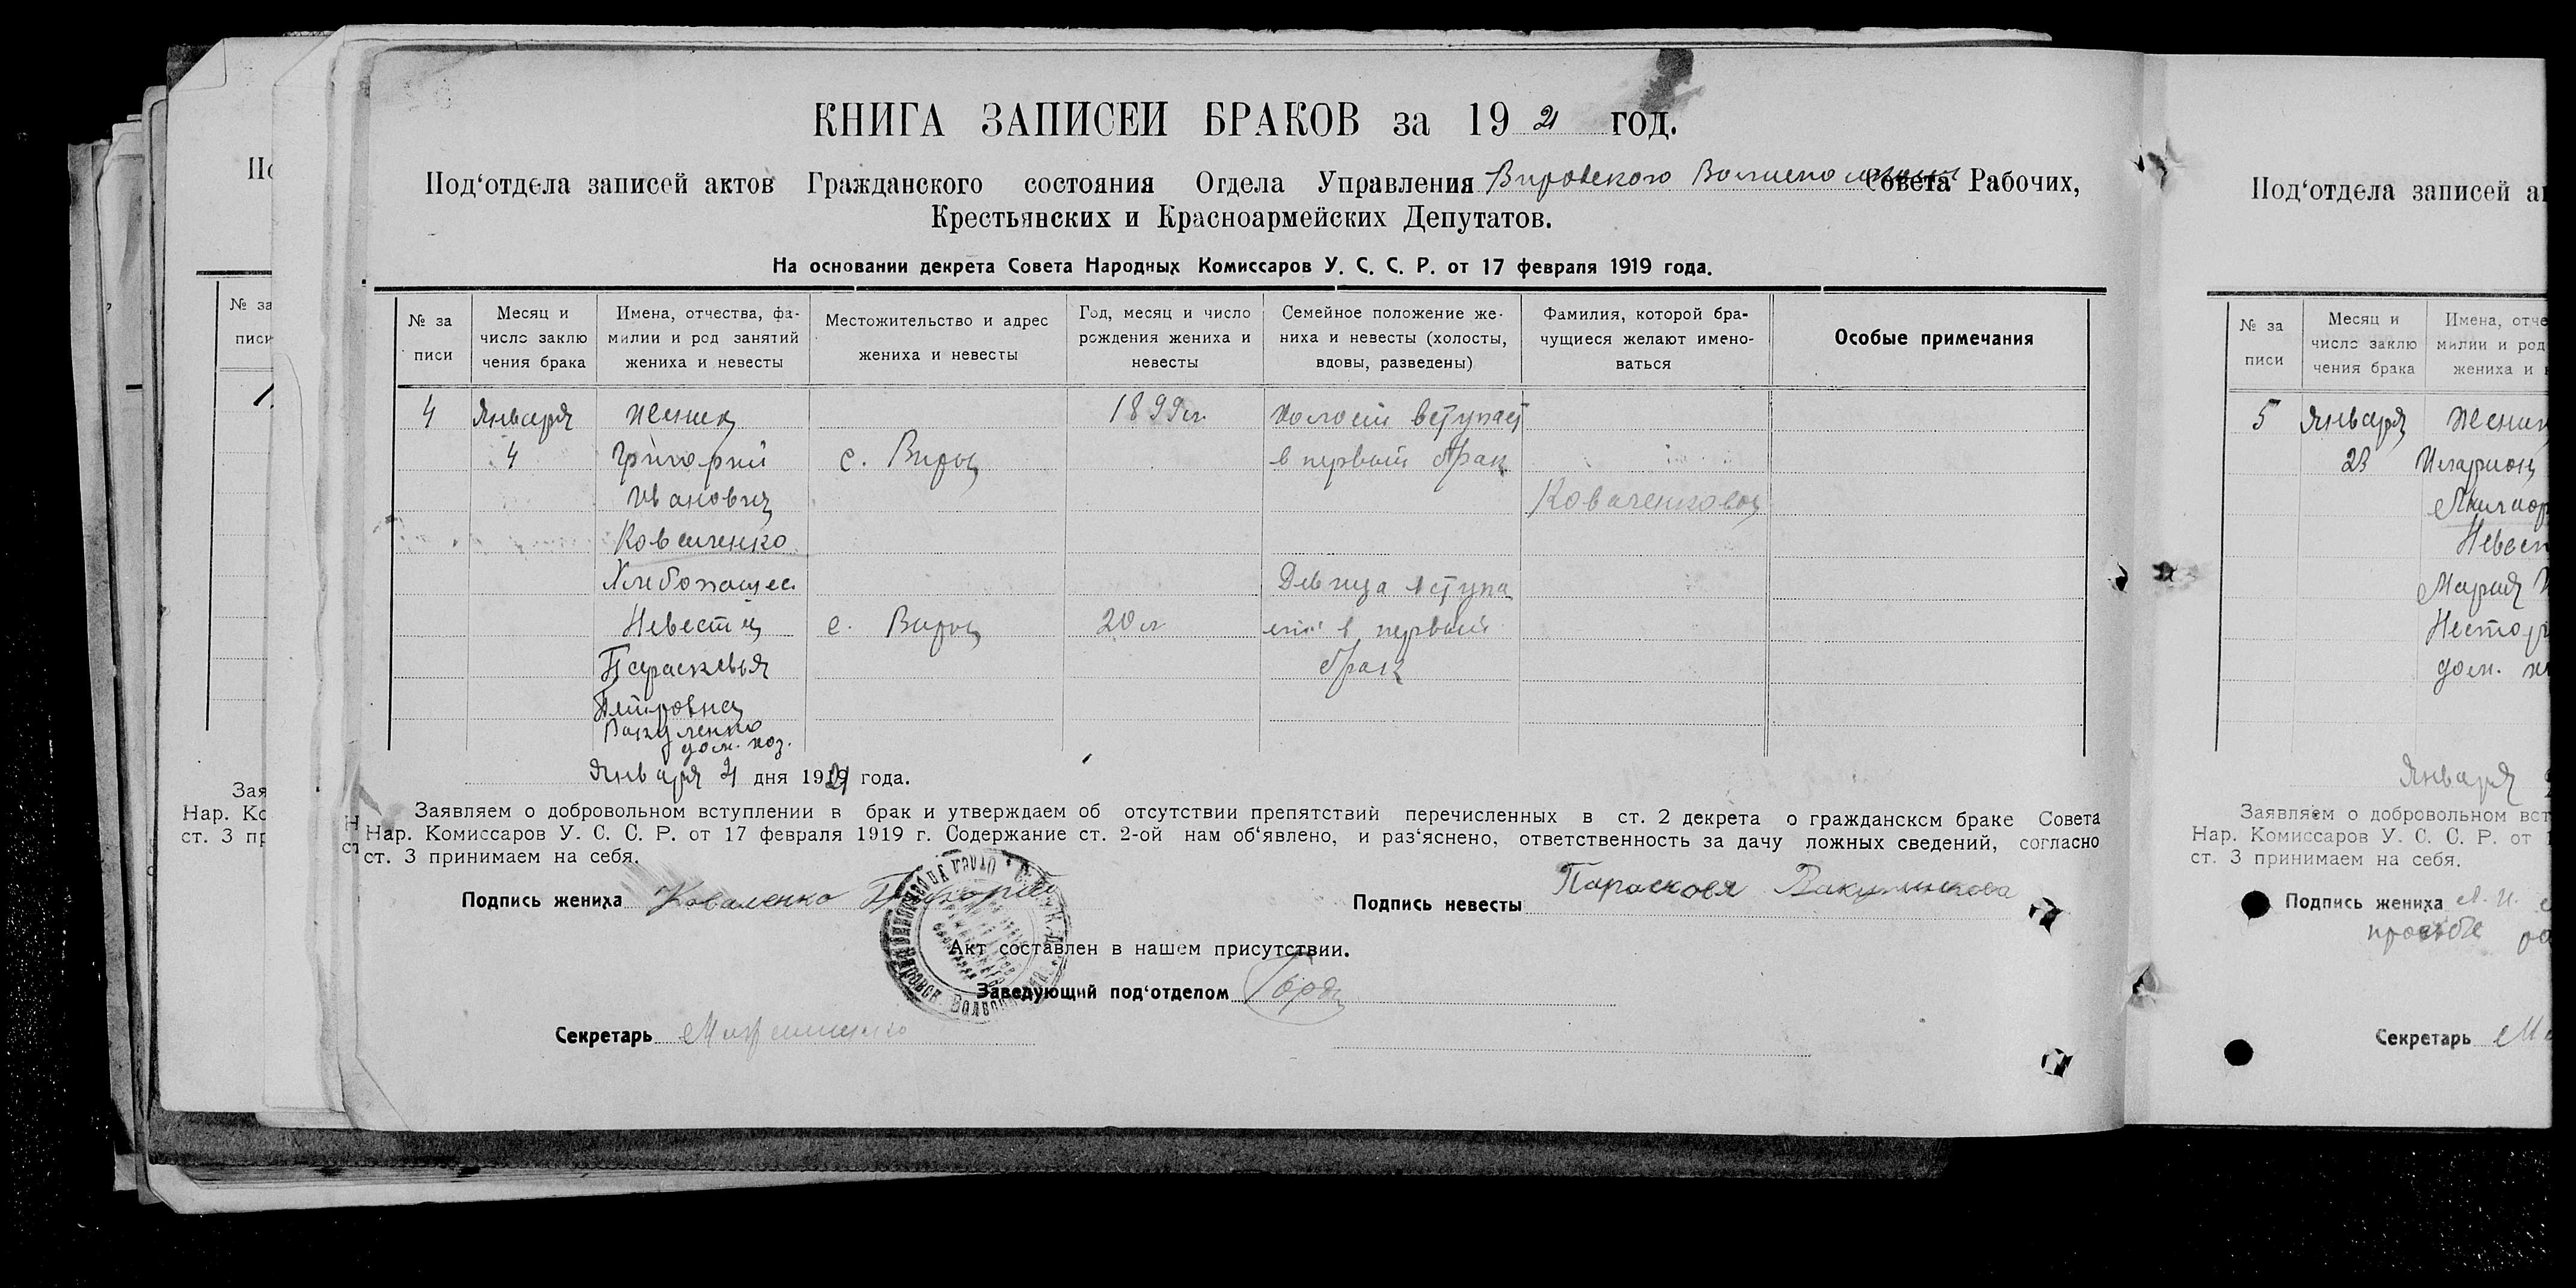 КНИГА ЗАПИСЕЙ БРАКОВ за 1921 год.
Под‘отдела записей актов Гражданского состояния Отдела Управления Вировского Совета Рабочих,
Крестьянских и Красноармейских Депутатов.
На основании декрета Совета Народных Комиссаров У. С. С. Р. от 17 февраля 1919 года.
№ за писи
Месяц и число заклю чения брака
Имена, отчества, фа- милии и род занятий жениха и невесты
Местожительство и адрес жениха и невесты
Год, месяц и число рождения жениха и невесты
Семейное положение же- ниха и невесты (холосты, вдовы, разведены)
Фамилия, которой бра- чущиеся желают имено- ваться
Особые примечания
4 Января Жених 1899 г. холост вступает
4 Григорий с. Виры в первый брак
Иванович
Коваленко
Хлебопашец Девица вступа
Невеста с. Виры 20 л ет в первый
Парасковья брак
Петровна
Вакуленко
дом. хоз.
Января 4 дня 1921 года.
Заявляем о добровольном вступлении в брак и утверждаем об отсутствии препятствий перечисленных в ст. 2 декрета о гражданском браке Совета
Нар. Комиссаров У. С. С. Р. от 17 февраля 1919 г. Содержание ст. 2-ой нам об‘явлено, и раз‘яснено, ответственность за дачу ложных сведений, согласно
ст. 3 принимаем на себя.
Подпись жениха Коваленко Григорий
Подпись невесты Парасковя Вакуленкова
Акт составлен в нашем присутствии.
Заведующий под‘отделом
Секретарь
Под‘отдела записей а
№ за писи
Месяц и число заклю чения брака
Имена, отче милии и род жениха и
5 Января Жених
23 Иларион
Невест
Мария
Нестор
дом. х
Января
Заявляем о добровольном вст
Нар. Комиссаров У. С. С. Р. от
ст. 3 принимаем на себя.
Подпись жениха
Секретарь